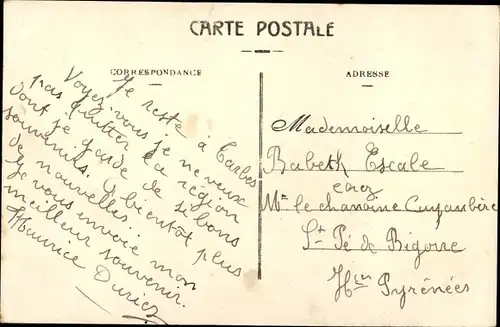 CARTE POSTALE
CORRESPONDANCE
Je reste à Tarbes
Voyez-vous je ne veux
pas quitter la région
dont je garde de si bons
souvenirs. A bientôt plus
de nouvelles..
Je vous envoie mon
meilleur souvenir.
Maurice
ADRESSE
Mademoiselle
Babeth Escale
chez
Mr le chanoine
St Pé de Bigorre
Htes Pyrénées